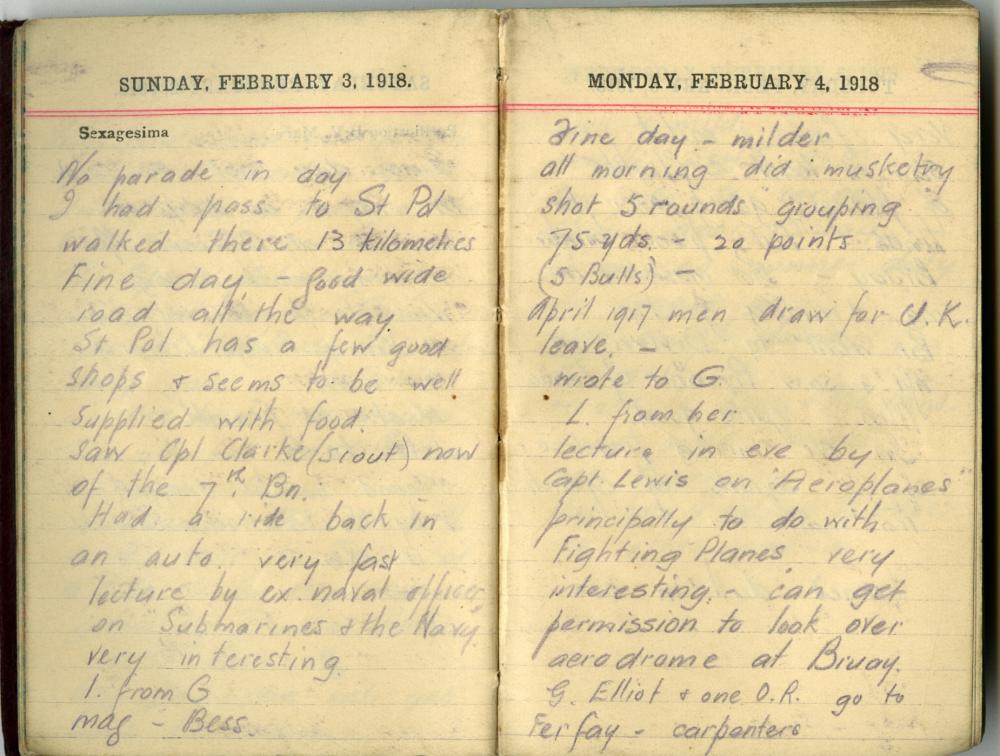 SUNDAY, FEBRUARY 3, 1918.
Sexagesima
No parade in day
I had pass to St Pol
walked there 13 kilometres
Fine day, - good wide
road all the way
St Pol has a few good
shops & seems to be well
supplied with food.
Saw Cpl Clarke (scout) now
of the 7th Bn.
Had a ride back in
an auto. very fast
lecture by ex. naval officer
on "Submarines & the Navy"
very interesting.
l. from G
mag - Bess.
MONDAY, FEBRUARY 4, 1918
Fine day - milder
all morning did musketry
shot 5 rounds grouping
75 yds. - 20 points
(5 Bulls) -
April 1917 men draw for U.K.
leave. -
wrote to G.
L. from her
lecture in eve by
Capt. Lewis on "Aeroplanes"
principally to do with
Fighting Planes, very
interesting. - can get
permission to look over
aerodrome at Bruay.
G. Elliot & one O.R. go to
Ferfay - carpenters